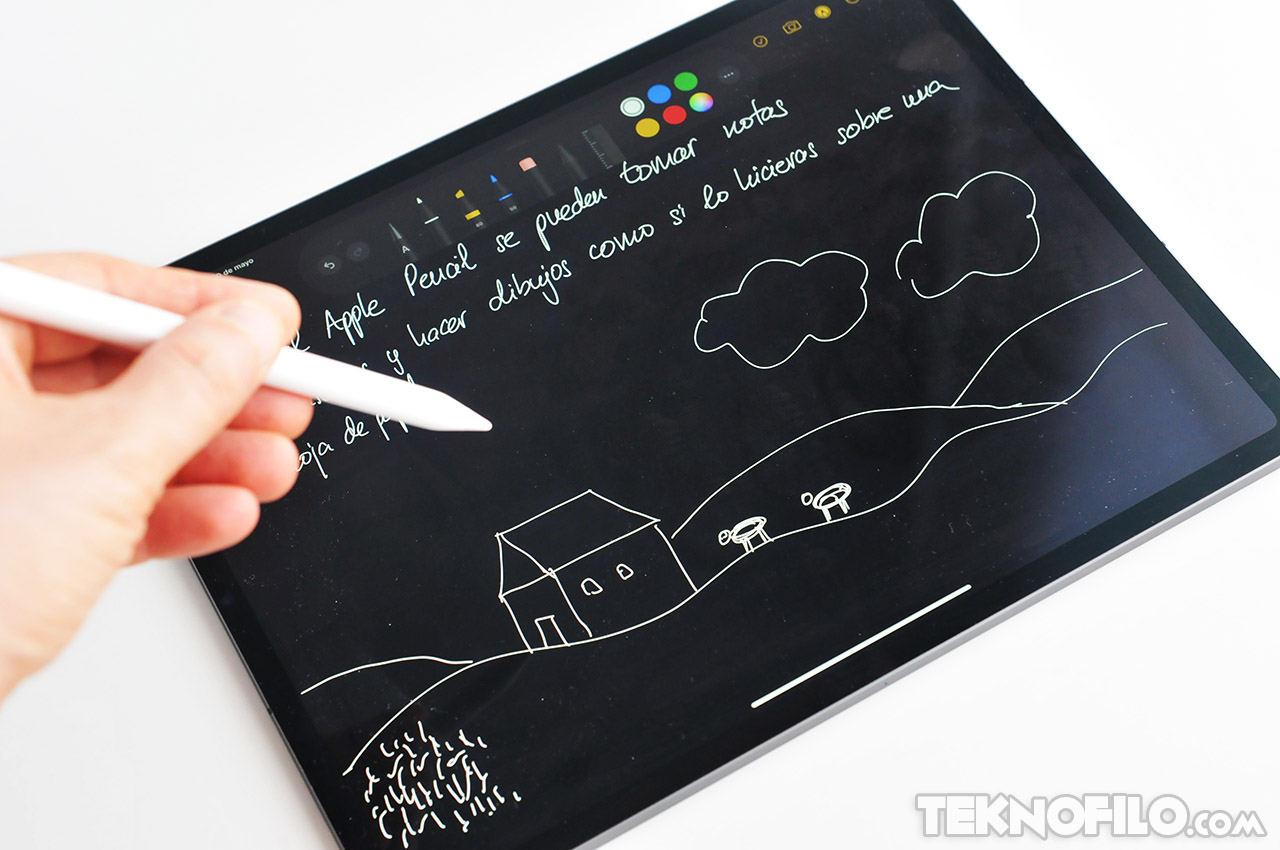 de mayo
Apple Pencil se pueden tomar notas
y hacer dibujos como si lo hicieras sobre una
de
A
TEKNOFILO.COM